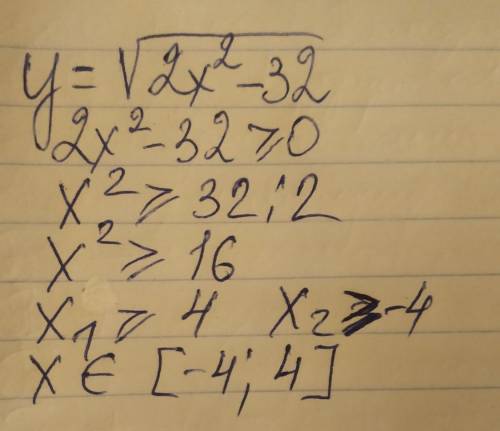 y = √2x² - 32
2x² - 32 ⩾ 0
x² ⩾ 32 : 2
x² ⩾ 16
x₁ ⩾ 4 x₂ ⩾ -4
x ∈ [-4; 4]